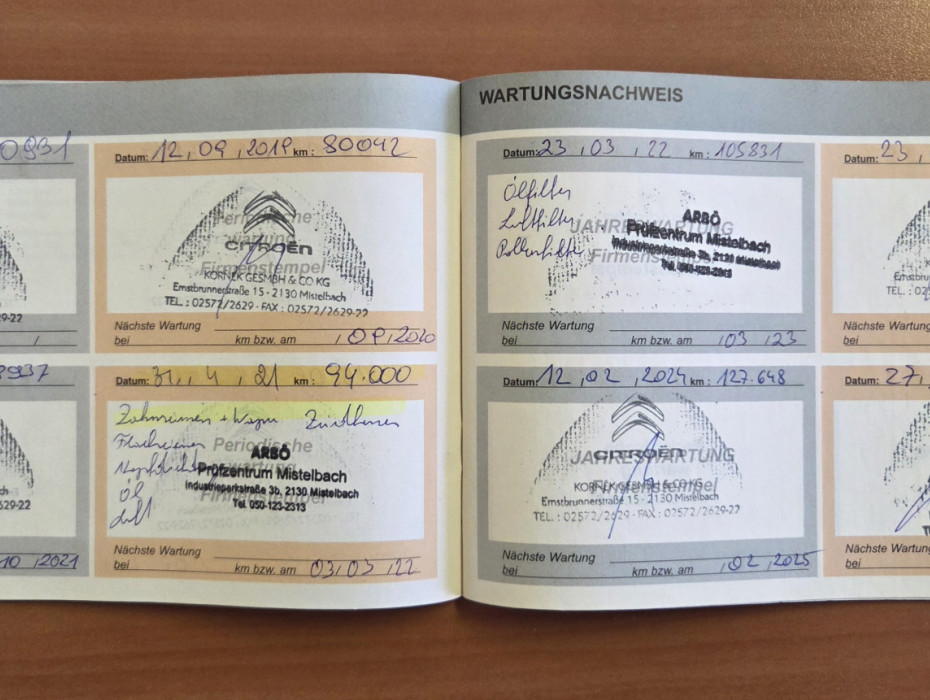 WARTUNGSNACHWEIS
0931
Datum: 12, 09, 2019 km: 80042
Periodische
CITROËN
Firmenstempel
KORNEK GESMBH & CO KG
Ernstbrunnerstraße 15 - 2130 Mistelbach
TEL.: 02572/2629 - FAX: 02572/2629-22
Nächste Wartung
bei km bzw. am , 09, 2020
29-22
Datum: 23, 03, 22 km: 105831
Ölfilter
Luftfilter
Pollenfilter
JAHRESWARTUNG
ARBÖ
Prüfzentrum Mistelbach
Industrieparkstraße 3b, 2130 Mistelbach
Firmenstempel
Tel. 050-123-2313
Nächste Wartung
bei km bzw. am , 03, 23
Datum: 23,
Nächste Wartung
bei
8937
Datum: 31, 4, 21 km: 94.000
Zahnriemen + Wapu
Periodische
ARBÖ
Prüfzentrum Mistelbach
Industrieparkstraße 3b, 2130 Mistelbach
Tel. 050-123-2313
Öl
Luft
Nächste Wartung
bei km bzw. am 03, 03, 22
629-22
10, 2021
Datum: 12, 02, 2024 km: 127.648
CITROËN
JAHRESWARTUNG
KORNEK GESMBH & CO KG
Firmenstempel
Ernstbrunnerstraße 15 - 2130 Mistelbach
TEL.: 02572/2629 - FAX: 02572/2629-22
Nächste Wartung
bei km bzw. am , 02, 2025
Datum: 27,
Nächste Wartung
bei